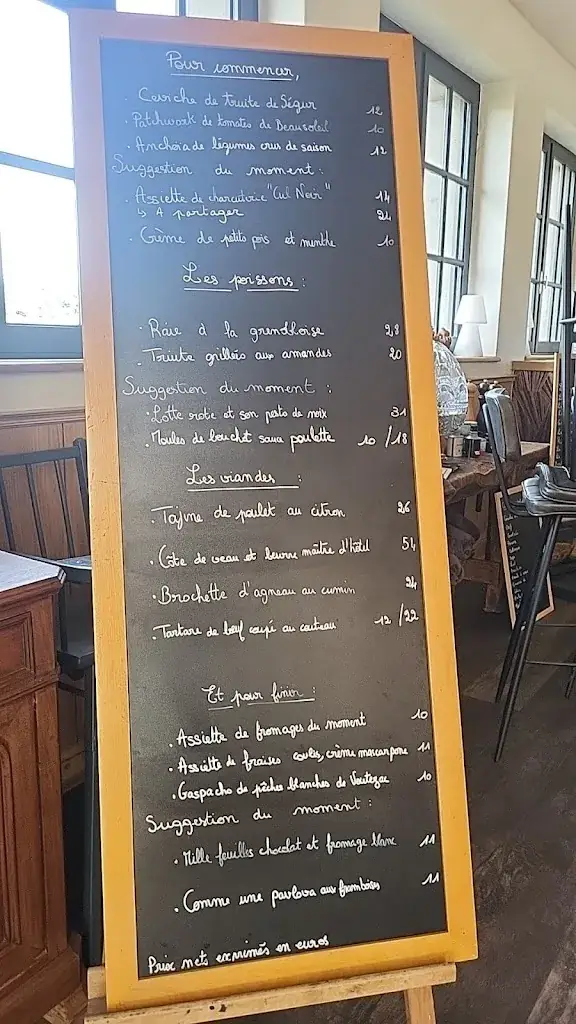 Pour commencer,
. Ceviche de truite de Ségur 12
. Patchwork de tomates de Beausoleil 10
. Anchoiade légumes crus de saison 12
Suggestion du moment :
. Assiette de charcuterie "Cul Noir" 14
↳ A partager 24
. Crème de petits pois et menthe 10
Les poissons :
. Raie à la grenobloise 28
. Truite grillée aux amandes 20
Suggestion du moment :
. Lotte rotie et son pesto de noix 31
. Moules de bouchot sauce poulette 10 / 18
Les viandes :
. Tajine de poulet au citron 26
. Côte de veau et beurre maître d'hôtel 54
. Brochette d'agneau au cumin 24
. Tartare de bœuf coupé au couteau 12 / 22
Et pour finir :
. Assiette de fromages du moment 10
. Assiette de fraises coulis, crème mascarpone 11
. Gaspacho de pêches blanches de Voutezac 10
Suggestion du moment :
. Mille feuilles chocolat et fromage blanc 11
. Comme une pavlova aux framboises 11
Prix nets exprimés en euros